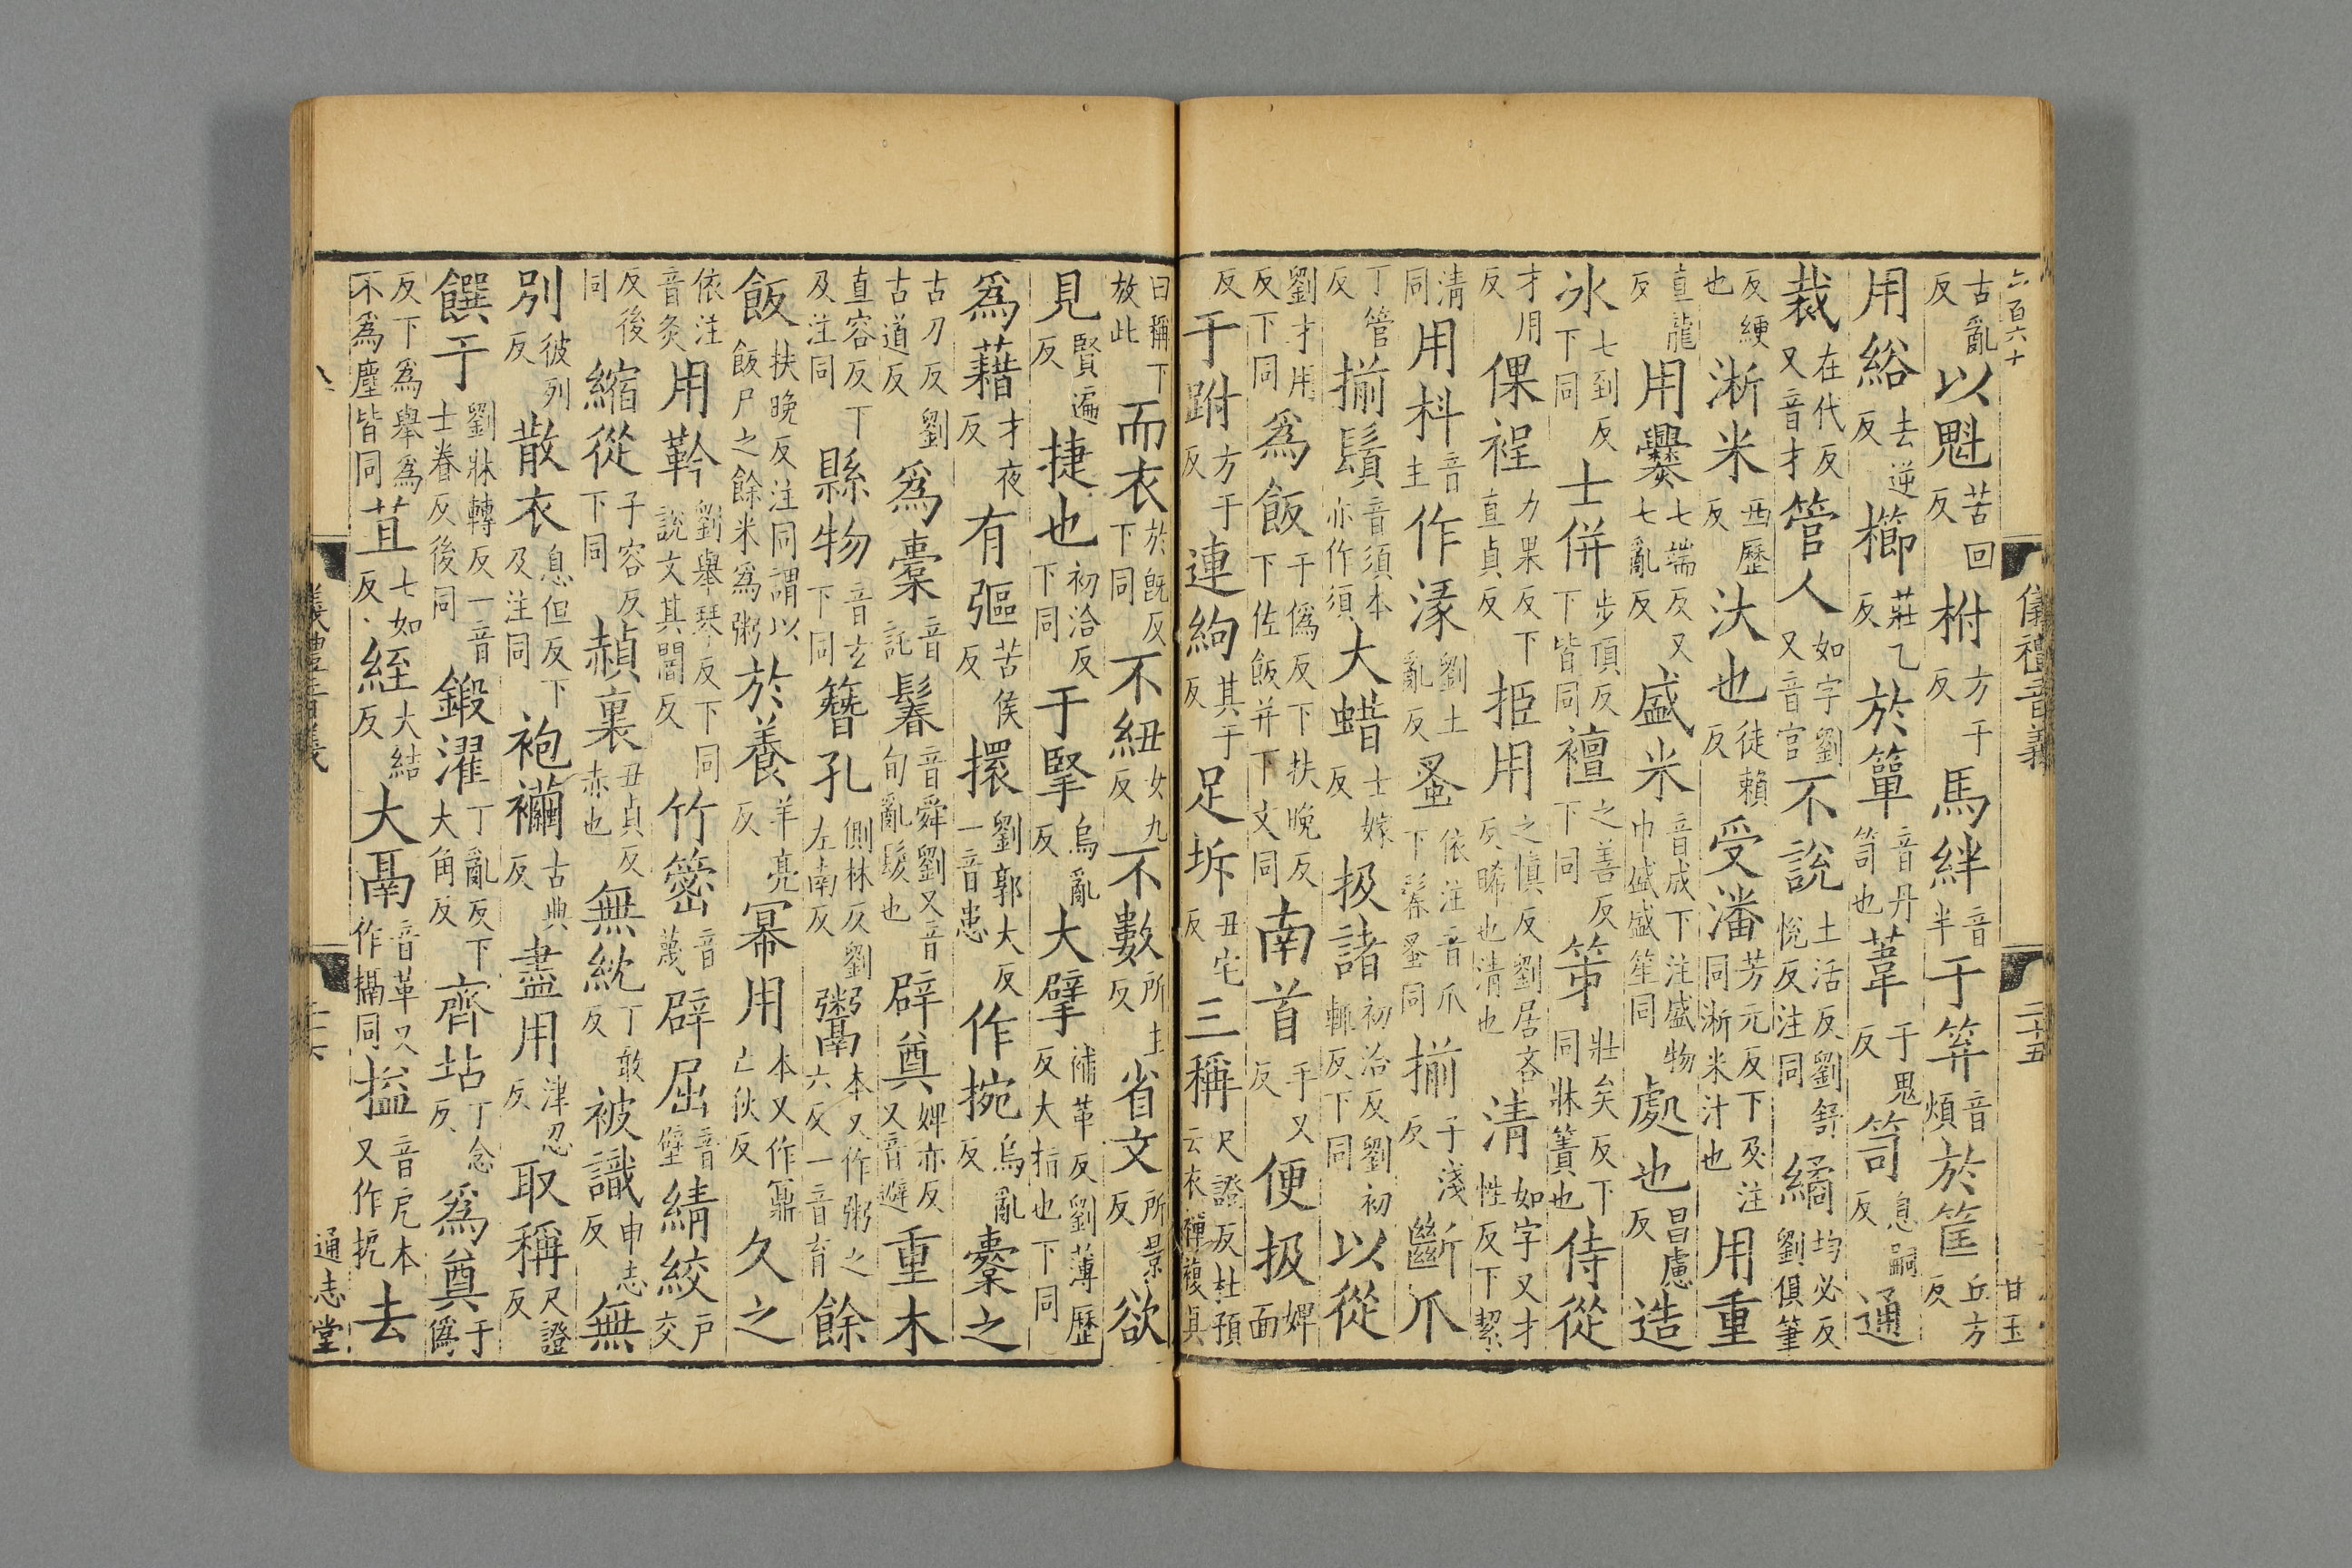 六百六十 儀禮音義 二十五 甘玉
古亂反以魁苦回反柎方于反馬絆音半于笲音煩於筐丘方反
用綌去逆反櫛莊乙反於簞音丹笥也葦于鬼反笥息嗣反通
裁在代反又音才管人如字劉又音官不說土活反劉舒悅反注同繘均必反劉俱筆
反綆也淅米西歷反汏也徒賴反受潘芳元反下及注同淅米汁也用重
直龍反用爨七端反又七亂反盛米音成下注盛物巾盛盛笙同處也昌慮反造
冰七到反下同士併步頂反下皆同襢之善反下同笫壯矣反下同牀簀也侍從
才用反倮裎力果反下直貞反挋用之愼反劉居吝反晞也清也清如字又才性反下絜
清同用枓音主作湪劉土亂反蚤依注音爪下鬊蚤同揃子淺反斷爪
丁管反揃鬚音須本亦作須大蜡士嫁反扱諸初洽反劉初輒反下同以從
劉才用反下同爲飯于僞反下扶晚反下佐飯并下文同南首手又反便扱婢面
反于跗方于反連絇其于反足坼丑宅反三稱尺證反杜預云衣襌複具
曰稱下放此而衣於旣反下同不紐女九反不數所主反省文所景反欲
見賢遍反捷也初洽反下同于掔烏亂反大擘補革反劉薄歷反大指也下同
爲藉才夜反有彄苦侯反擐劉郭大反一音患作捥烏亂反櫜之
古刀反劉古道反爲櫜音託鬊音舜劉又音旬亂髮也辟奠婢亦反又音避重木
直容反下及注同縣物音玄下同簪孔側林反劉左南反鬻本又作粥之六反一音育餘
飯扶晚反注同謂以飯尸之餘米爲粥於養羊亮反冪用本又作鼏亡狄反久之
依注音灸用靲劉舉琴反下同說文其闇反竹䈼音蔑辟屈音璧綪絞戶交
反後同縮從子容反下同赬裏丑貞反赤也無紞丁敢反被識申志反無
別彼列反散衣息但反下及注同袍襺古典反盡用津忍反取稱尺證反
饌于劉牀轉反一音士眷反後同鍛濯丁亂反下大角反齊坫丁念反爲奠于僞
反下爲舉爲不爲塵皆同苴七如反絰大結反大鬲音革又作搹同搤音戹本又作扼去
儀禮音義 通志堂